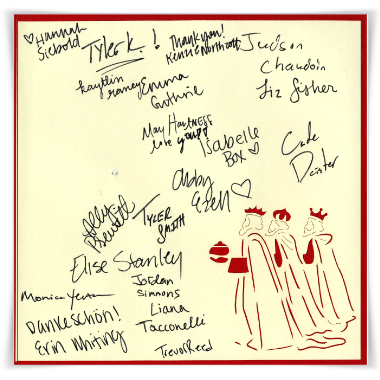 ♡Hannah
Siebold
Tyler K. !
Thank you!
Kenzie Northcott
Judson
Chaudoin
Kaytlin
Raney
Emma
Guthrie
Liz Fisher
May Harkness
love you!!
Isabelle
Box ♡
Cade
Deister
Abby
Ezell ♡
Tyler
Smith
Elise Stanley
JoEdan
Simmons
Monica
Liana
Tacconelli
Dankeschön!
Erin Whiting
Trevor Reed